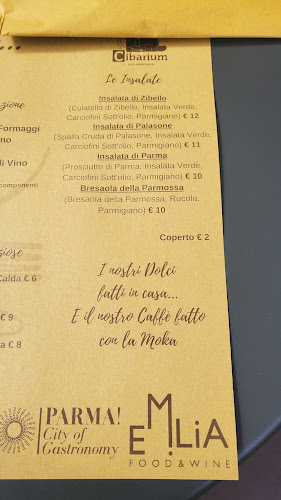 Cibarium
Le Insalate
Insalata di Zibello
(Culatello di Zibello, Insalata Verde,
Carciofini Sott'olio, Parmigiano) € 12
Insalata di Palasone
(Spalla Cruda di Palasone, Insalata Verde,
Carciofini Sott'olio, Parmigiano) € 11
Insalata di Parma
(Prosciutto di Parma, Insalata Verde,
Carciofini Sott'olio, Parmigiano) € 10
Bresaola della Parmossa
(Bresaola della Parmossa, Rucola,
Parmigiano) € 10
Coperto € 2
zione
Formaggi
no
di Vino
component:
giose
Calda € 6
€ 9
a € 8
I nostri Dolci
fatti in casa...
E il nostro Caffè fatto
con la Moka
PARMA!
City of
Gastronomy
EMILIA
FOOD & WINE